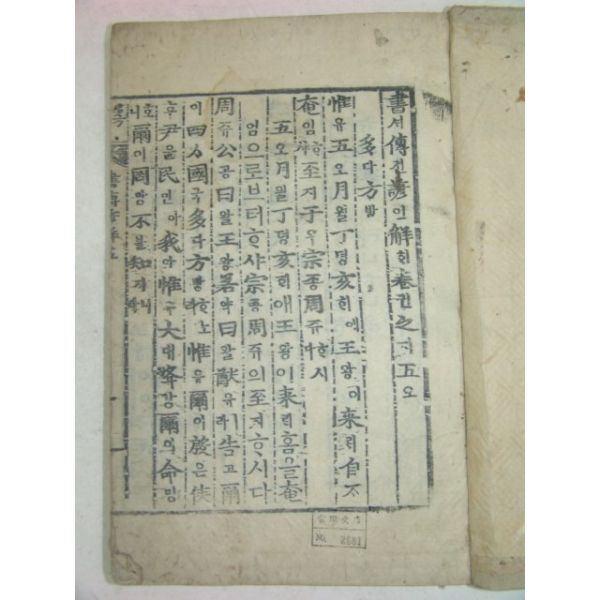 書셔傳젼諺언解ᄒᆡ卷권之지五오
多다方방
惟유五오月월丁뎡亥ᄒᆡ에王왕이來ᄅᆡ自ᄌᆞ
奄엄ᄒᆞ샤至지于우宗종周쥬ᄒᆞ시다
五오月월丁뎡亥ᄒᆡ애王왕이來ᄅᆡ홈을奄
엄으로브터ᄒᆞ샤宗종周쥬의至지ᄒᆞ시다
周쥬公공曰왈王왕若약曰왈猷유라告고爾
이四ᄉᆞ國국多다方방ᄒᆞ노惟유爾이殷은侯
후尹윤民민아我아惟유大대降강爾이命명
ᄒᆞ니爾이罔망不불知지니라
No. 2681